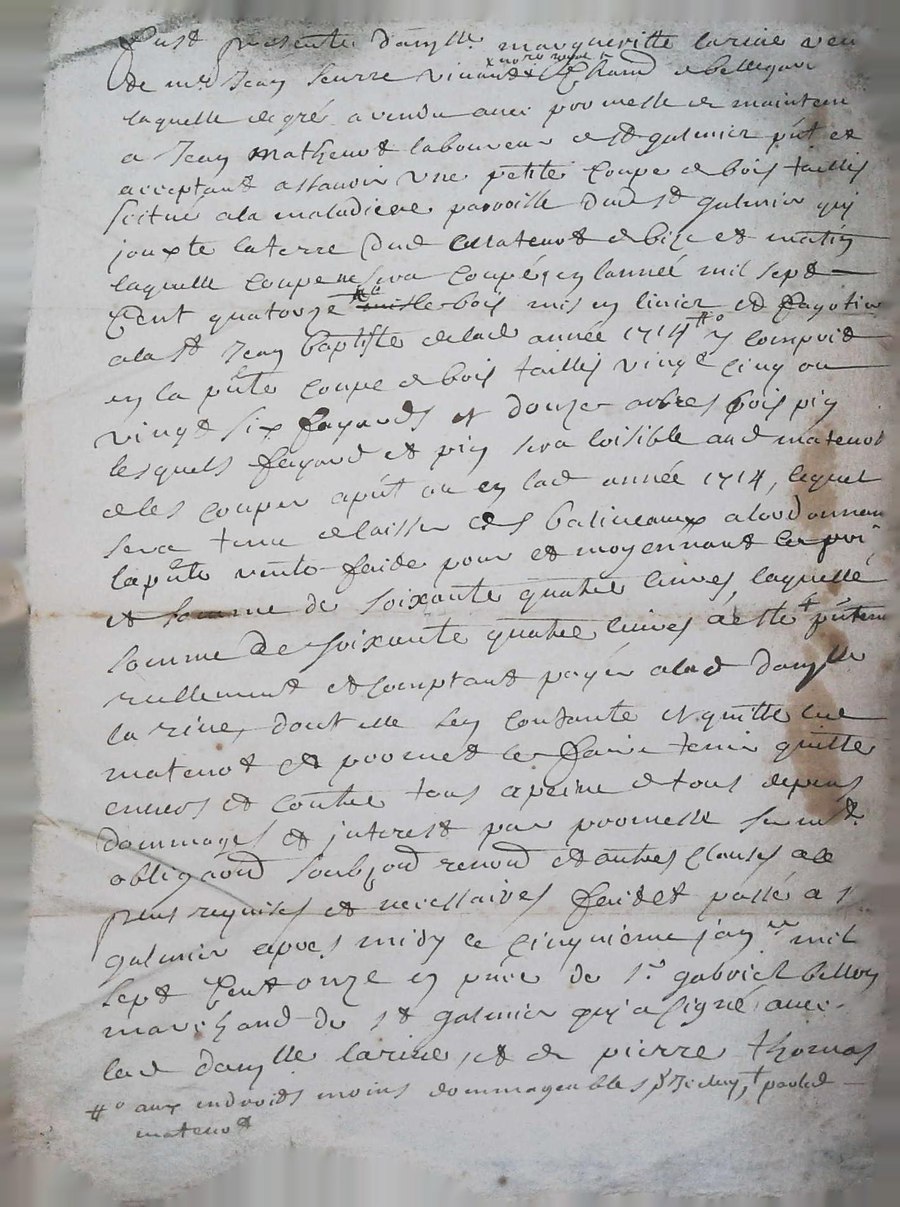 Fust presente damlle margueritte larine veu
de mre Jean seurre vivand marchand de bellegarde
laquelle de gré a vendu avec promesse de mainteni
a Jean mathenot laboureur de st galmier pnt et
acceptant assavoir une petite coupe de bois taillis
scitué a la maladiere parroisse dud st galmier qui
jouxte la terre dud matenot de bize et matin
laquelle coupe sera coupée en lannée mil sept
cent quatorze le bois mis en linier et fagotier
a la st Jean baptiste de lad année 1714 #o y compris
en la pnte coupe de bois taillis vingt cinq ou
vingt six fayards et douze arbres bois pin
lesquels fayard et pin sera loisible aud matenot
de les couper apnt ou en lad année 1714, lequel
sera tenu de laisser des baliveaux a lordonnan
la pnte vente faite pour et moyennant le pri
et somme de soixante quatre livres, laquelle
somme de soixante quatre livres a esté + pntem
reellement et comptant payée a lad damlle
larine, dont elle sen contante et quitte led
matenot et promet le faire tenir quitte
envers et contre tous a peine de tous depens
dommages et interest par promesse serment
obligaond soubzond renond et autres clauses a ce
plus requises et necessaires fait et passé a st
galmier apres midy ce cinquieme janer mil
sept cent onze en pnce de sr gabriel bellon
marchand de st galmier qui a signé avec
lad damlle larine, et de pierre thomas
#o aux endroits moins dommageables + par led
matenot